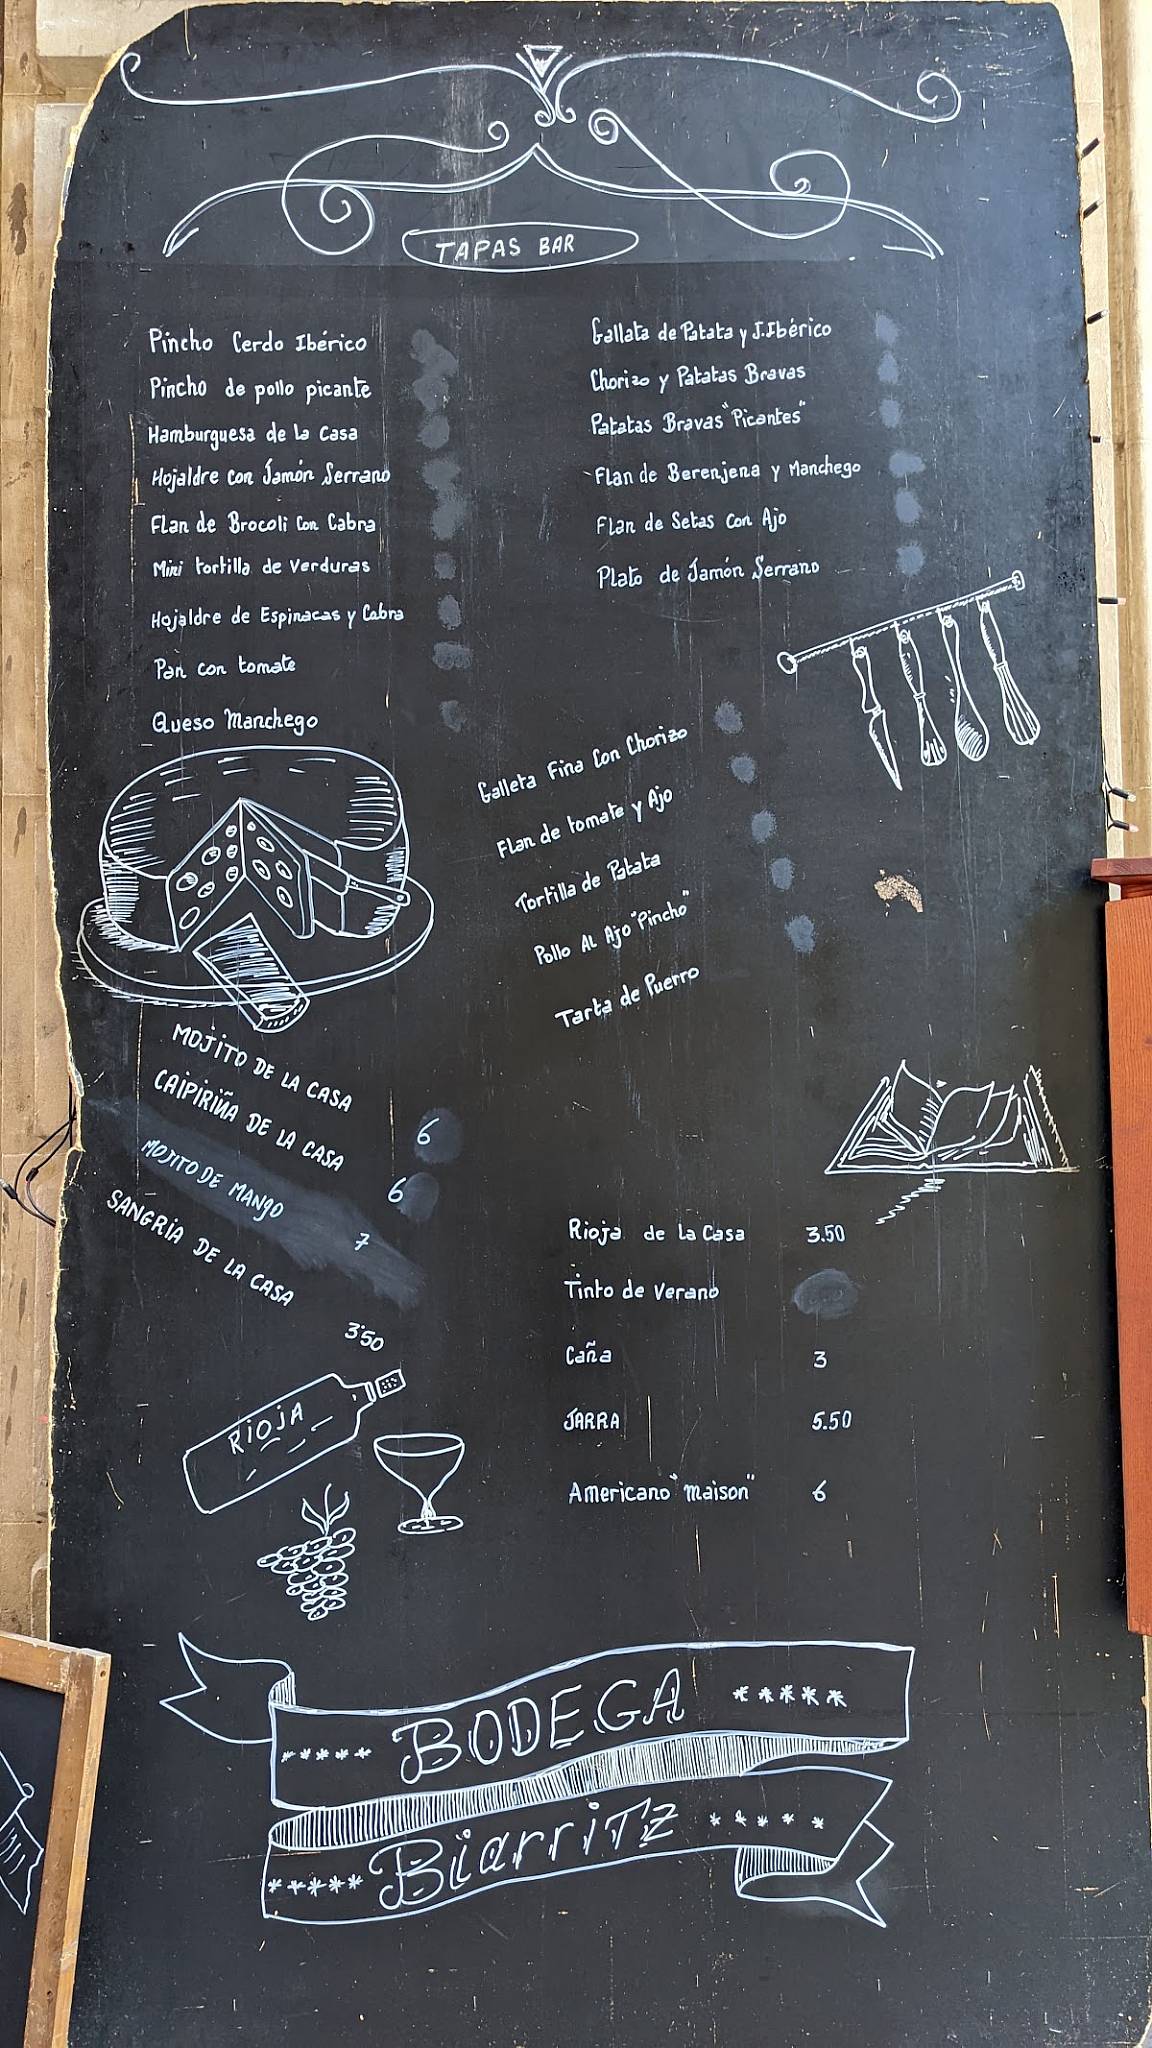 TAPAS BAR
Pincho Cerdo Ibérico
Pincho de pollo picante
Hamburguesa de la Casa
Hojaldre con Jamón Serrano
Flan de Brocoli Con Cabra
Mini tortilla de Verduras
Hojaldre de Espinacas y Cabra
Pan con tomate
Queso Manchego
Gallata de Patata y J.Ibérico
Chorizo y Patatas Bravas
Patatas Bravas "Picantes"
Flan de Berenjena y Manchego
Flan de Setas Con Ajo
Plato de Jamón Serrano
Galleta Fina Con Chorizo
Flan de tomate y Ajo
Tortilla de Patata
Pollo Al Ajo "Pincho"
Tarta de Puerro
MOJITO DE LA CASA 6
CAIPIRIÑA DE LA CASA 6
MOJITO DE MANgO 7
SANGRIA DE LA CASA 3'50
Rioja de la Casa 3.50
Tinto de Verano
Caña 3
JARRA 5.50
Americano "maison" 6
RiOJA
***** BODEGA *****
***** BiarriTZ *****